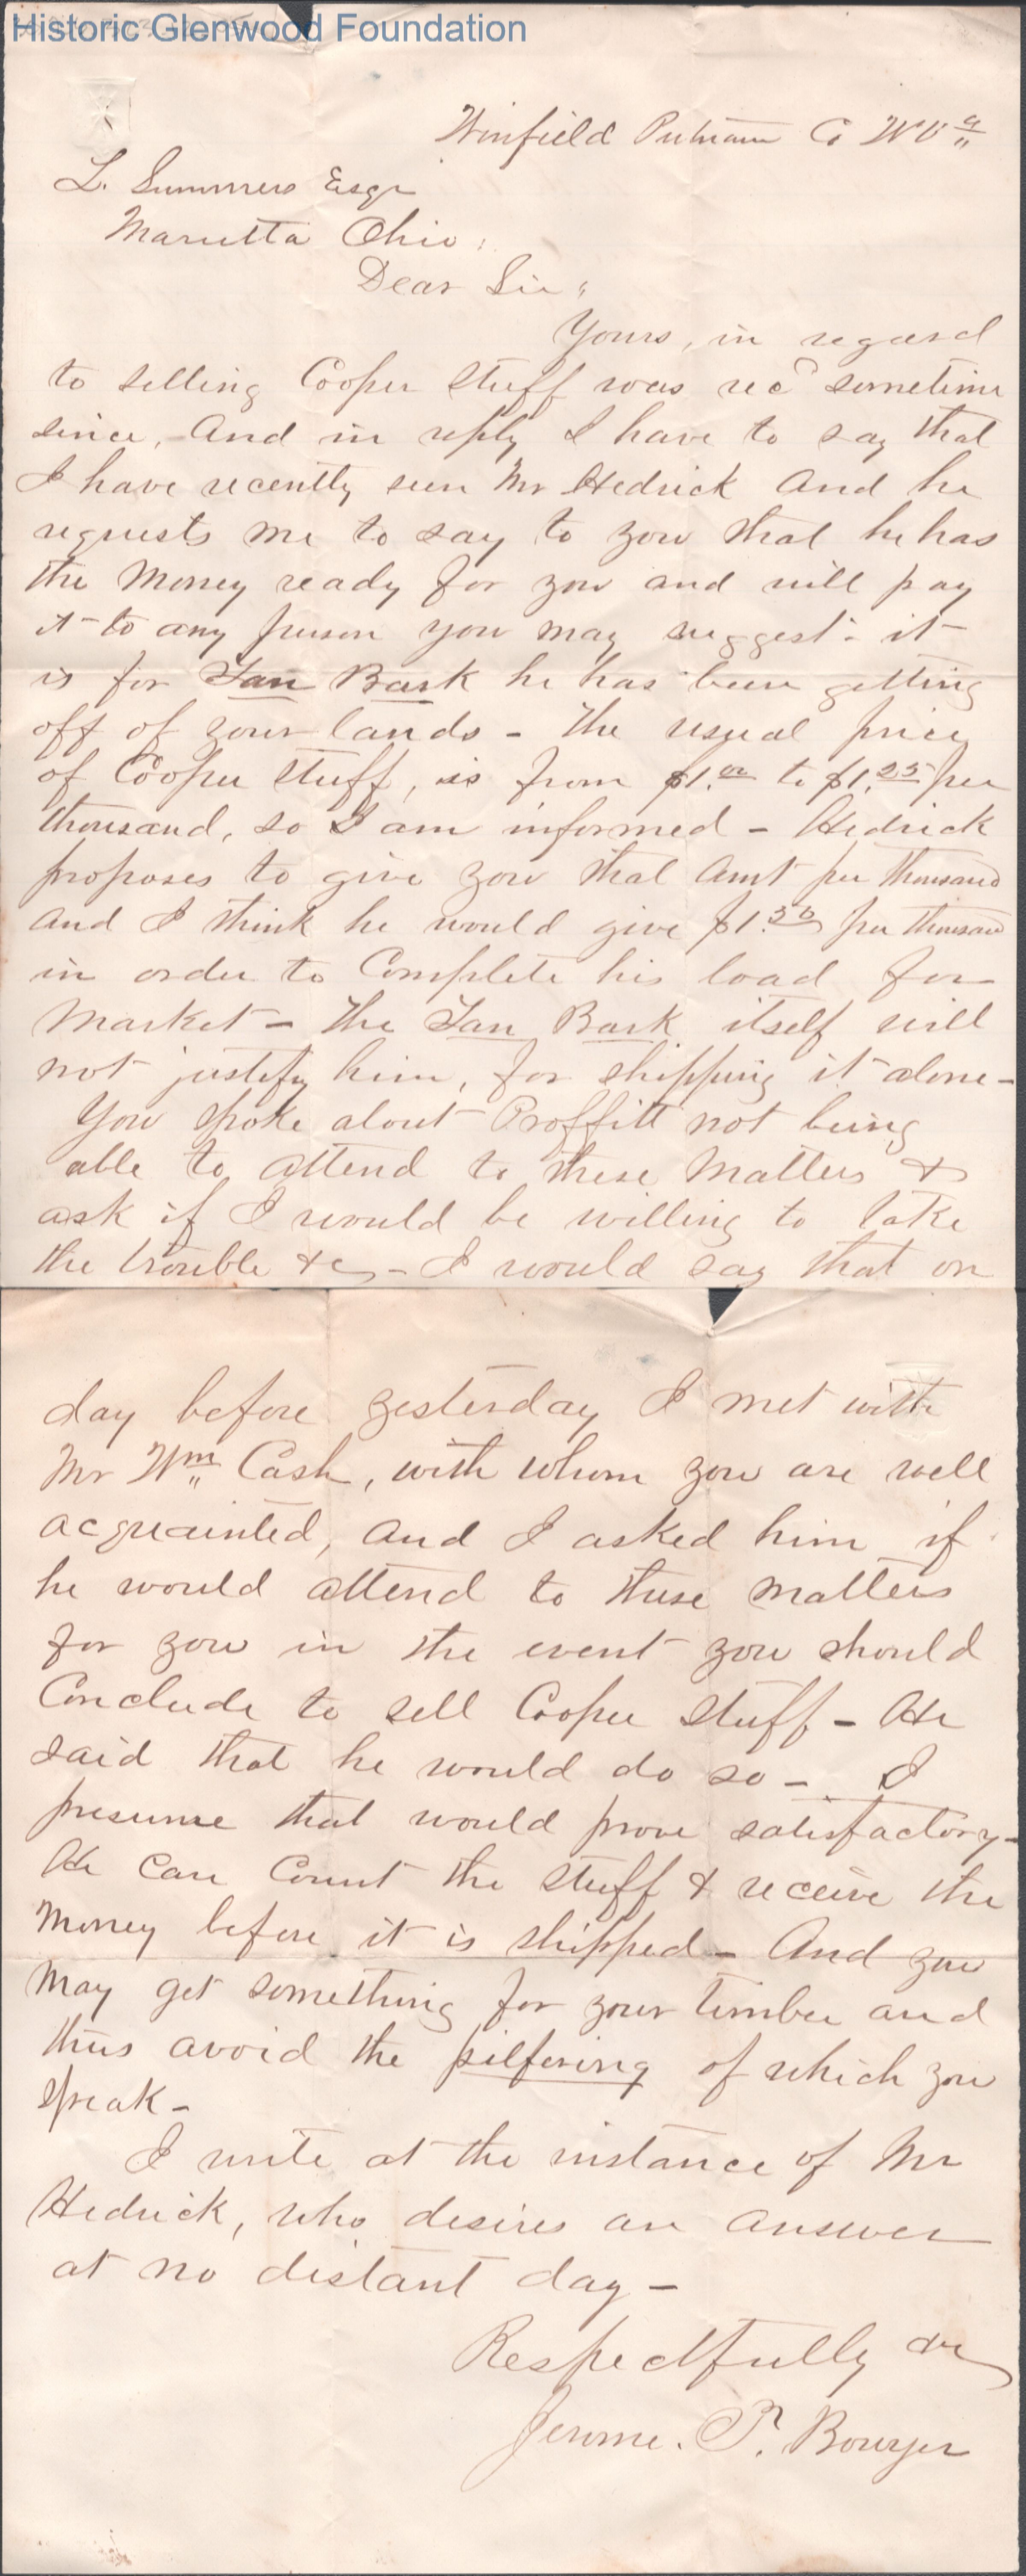 Historic Glenwood Foundation
Winfield Putnam Co W Va
L. Summers Esqr
Marietta Ohio,
Dear Sir,
Yours, in regard
to selling Cooper Stuff was recd sometime
since, And in reply I have to say that
I have recently seen Mr Hedrick And he
requests me to say to you that he has
the Money ready for you and will pay
it to any person you may suggest - it
is for Tan Bark he has been getting
off of your lands - The usual price
of Cooper Stuff, is from $1.00 to $1.25 per
thousand, so I am informed - Hedrick
proposes to give you that Amt per thousand
And I think he would give $1.30 per thousand
in order to Complete his load for
Market - The Tan Bark itself will
not justify him, for shipping it alone -
You spoke about Proffitt not being
able to Attend to these Matters &
ask if I would be willing to take
the trouble &c - I would say that on
day before yesterday I met with
Mr Wm Cash, with whom you are well
acquainted, And I asked him if
he would attend to these matters
for you in the event you should
Conclude to sell Cooper Stuff - He
said that he would do so - I
presume that would prove satisfactory -
He Can Count the Stuff & receive the
Money before it is shipped - And you
May get something for your timber and
thus avoid the pilfering of which you
speak -
I write at the instance of Mr
Hedrick, who desires an Answer
at no distant day -
Respectfully &c
Jerome. T. Bowyer